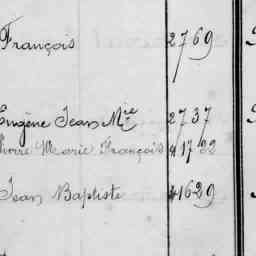 François 2769
Eugène Jean Mie 2737
Marie François 4172
Jean Baptiste 41629